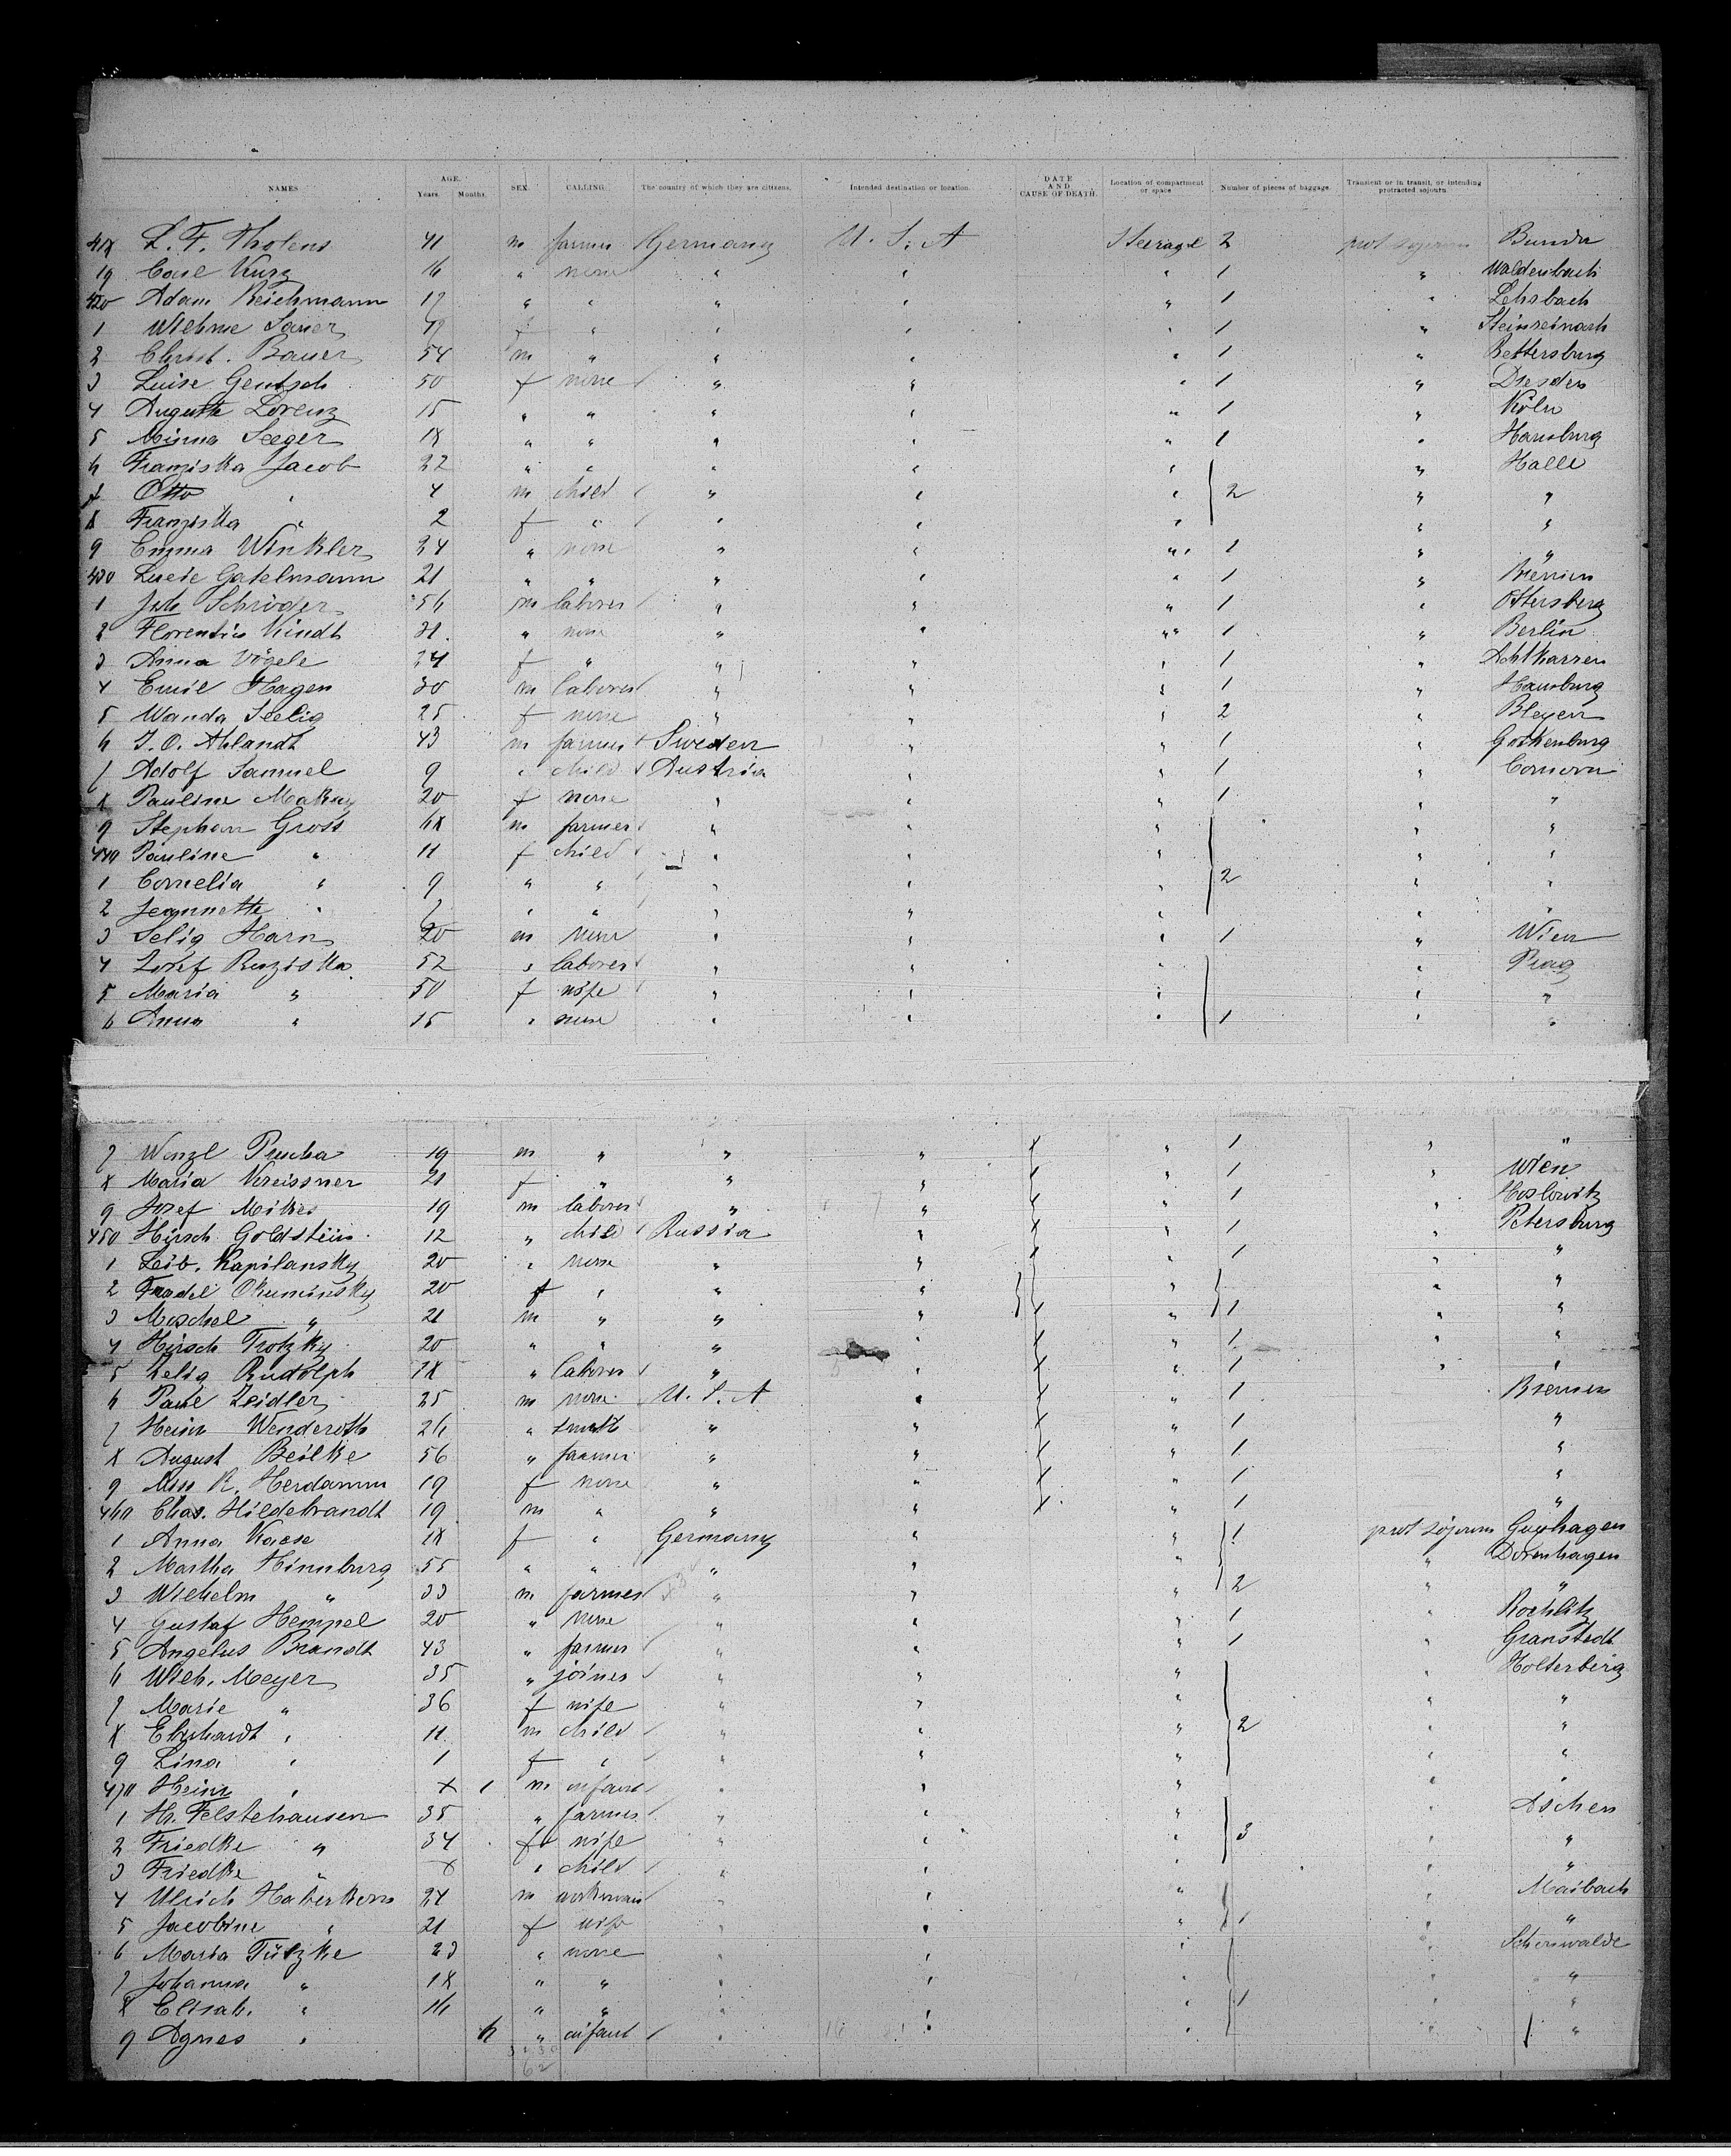 NAMES AGE. Years. Months. SEX. CALLING. The country of which they are citizens. Intended destination or location. DATE AND CAUSE OF DEATH. Location of compartment or space Number of pieces of baggage. Transient or in transit, or intending protracted sojourn.
418 L. F. Tholens 41 m farmer Germany U. S. A Steerage 2 prot sojourn Bunde
19 Carl Kurz 16 " none " " " 1 " Waldenbach
420 Adam Reichmann 17 " " " " " 1 " Lehrbach
1 Wilhme Sauer f " " " " 1 " Steinreinach
2 Christ. Bauer 54 m " " " " 1 " Rettersburg
3 Luise Gentsch 50 f none " " " 1 " Dresden
4 Auguste Lorenz 15 " " " " " 1 " Köln
5 Minna Seeger 18 " " " " " 1 " Hamburg
6 Franziska Jacob 22 " " " " " " Halle
7 Otto " 4 m child " " " 2 " "
8 Franziska " 2 f " " " " " "
9 Emma Winkler 24 " none " " " 1 " "
430 Lucie Gatelmann 21 " " " " " 1 " Bremen
1 Joh Schröder 56 m laborer " " " 1 " Ottersberg
2 Florentin Kindt 31 " none " " " 1 " Berlin
3 Anna Vögele 24 f " " " " 1 " Achtkarren
4 Emil Hagen 30 m laborer " " " 1 " Hamburg
5 Wanda Seelig 25 f none " " " 2 " Bleyen
6 J. O. Ahlandt 43 m farmer Sweden " " 1 " Gothenburg
7 Adolf Samuel 9 " child Austria " " 1 " Comorn
8 Pauline Makay 20 f none " " " 1 " "
9 Stephan Gross 68 m farmer " " " " "
440 Pauline " 11 f child " " " " "
1 Cornelia " 9 " " " " " 2 " "
2 Jeannette " 7 " " " " " " "
3 Selig Harn 20 m none " " " 1 " Wien
4 Josef Ruziska 52 " laborer " " " " Prag
5 Maria " 50 f wife " " " " "
6 Anna " 15 " none " " " 1 " "
7 Wenzl Prucha 19 m " " " " 1 " "
8 Maria Kreissner 21 f " " " " 1 " Wien
9 Josef Mikes 19 m laborer " " " 1 " Hoslowitz
450 Hirsch Goldstein 12 " child Russia " " 1 " Petersburg
1 Leib. Kapilansky 20 " none " " " 1 " "
2 Fradel Okuminsky 20 f " " " " " "
3 Moschel " 21 m " " " " 1 " "
4 Hirsch Trotzky 20 " " " " " 1 " "
5 Zelig Rudolph 18 " laborer " " " 1 " "
6 Paul Zeidler 25 m none U. S. A " " 1 Bremen
7 Heinr Wenderoth 26 " smith " " " 1 "
8 August Beilke 56 " farmer " " " 1 "
9 Miss R. Herdamm 19 f none " " " 1 "
460 Chas. Hildebrandt 19 m " " " " 1 "
1 Anna Kaese 18 f " Germany " " 1 prot sojourn Guxhagen
2 Martha Hinnburg 55 " " " " " " Dörenhagen
3 Wilhelm " 33 m farmer " " " 2 " "
4 Gustaf Hempel 20 " none " " " 1 " Rochlitz
5 Angelus Brandt 43 " farmer " " " 1 " Granstedt
6 Wilh. Meyer 35 " joiner " " " " Holterberg
7 Marie " 36 f wife " " " " "
8 Eberhardt " 11 m child " " " 2 " "
9 Lina " 1 f " " " " " "
470 Heinr " 1 m infant " " " " "
1 Hr. Felstehausen 35 " farmer " " " " Aschen
2 Friedke " 34 f wife " " " 3 " "
3 Friedke " 8 " child " " " " "
4 Ulrich Haberkorn 24 m workman " " " " Maibach
5 Jacobine " 21 f wife " " " 1 " "
6 Maria Tützke 23 " none " " " " Schönwalde
7 Johanna " 18 " " " " " " "
8 Elisab. " 16 " " " " " 1 " "
9 Agnes " 6 " infant " " " " "